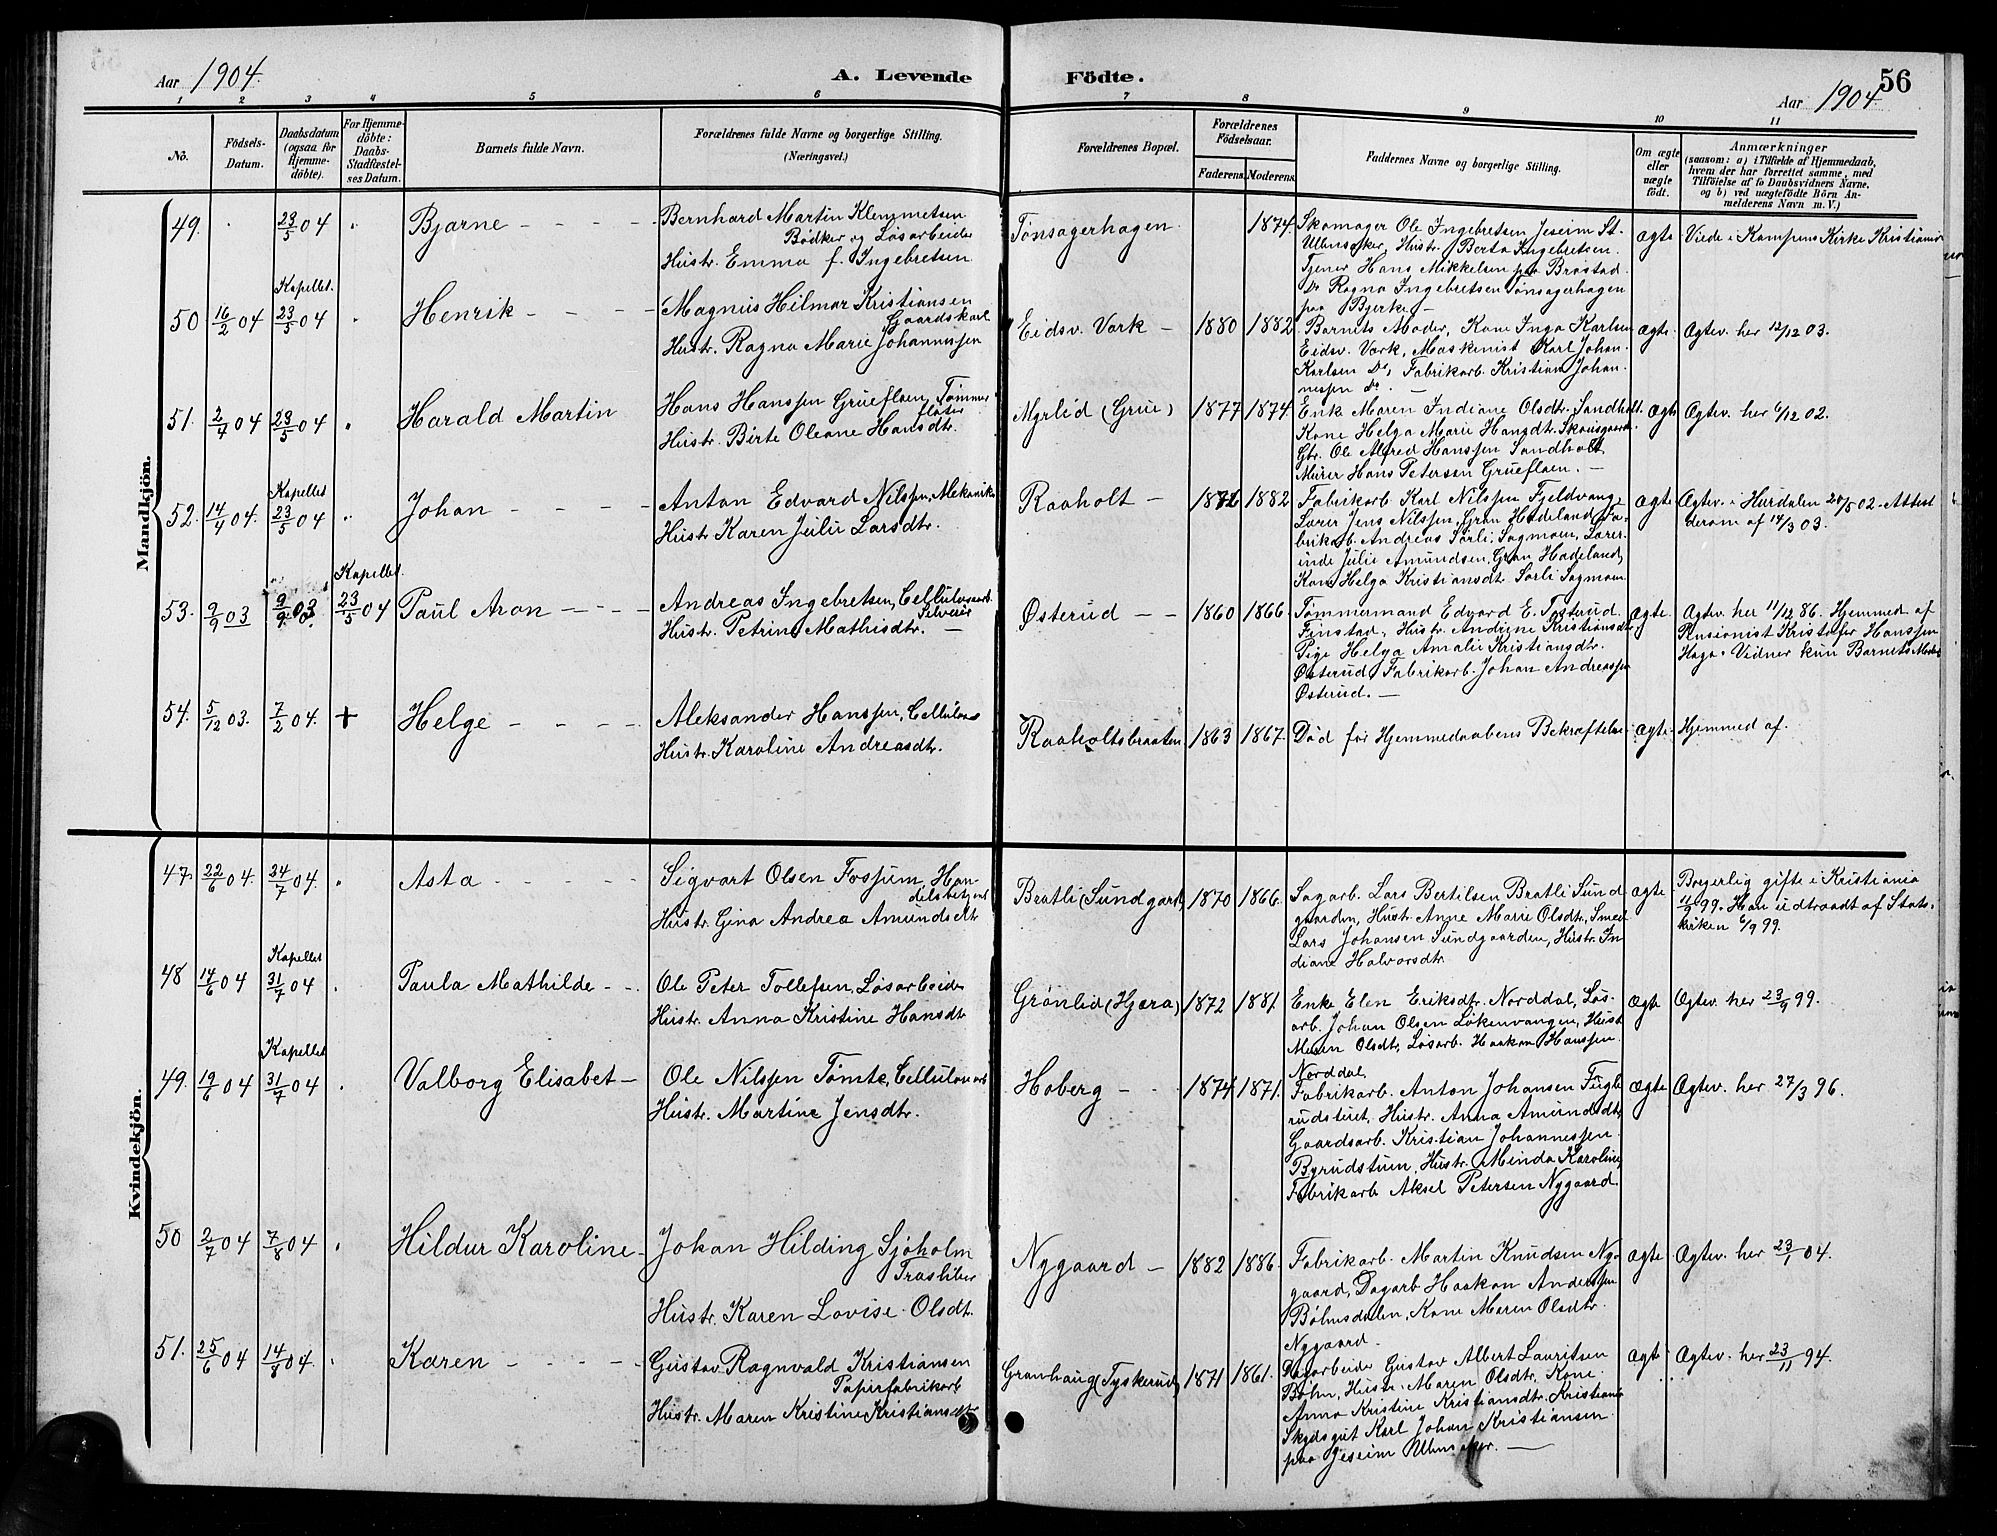 Aar 1904.
A. Levende Födte.
56
Aar 1904
1 2 3 4 5 6 7 8 9 10 11
No.
Födsels-Datum.
Daabsdatum (ogsaa for Hjemme-döbte).
For Hjemme-döbte: Daabs-Stadfæstel-ses Datum.
Barnets fulde Navn.
Forældrenes fulde Navne og borgerlige Stilling.
(Næringsvei.)
Forældrenes Bopæl.
Forældrenes Födselsaar.
Faderens. Moderens.
Faddernes Navne og borgerlige Stilling.
Om ægte eller uægte födt.
Anmærkninger
(saasom: a) i Tilfælde af Hjemmedaab,
hvem der har forrettet samme, med
Tilföielse af to Daabsvidners Navne,
og b) ved uægtefödte Börn An-
melderens Navn m. V.)
Mandkjön.
49. 23/5 04 Bjarne
Bernhard Martin Klemmetsen
Bødker og Løsarbeider
Hustr. Emma f. Ingebretsen
Tønsagerhagen 1874.
Skomager Ole Ingebretsen Jeseim St.
Ullensaker, Hustr. Berta Ingebretsen
Tjener Hans Mikkelsen paa Brostad
Do Ragna Ingebretsen Tønsagerhagen
paa Bjerke
Ægte Viede i Kampens Kirke Kristiania
50 16/2 04 Kapellet 23/5 04 Henrik
Magnus Hilmar Kristiansen
Gaardskarl
Hustr. Ragna Marie Johannessen
Eidsv. Værk 1880 1882
Barnets Moder, Kone Inga Karlsen
Eidsv. Værk, Maskinist Karl Johan
Karlsen Do, Fabrikarb. Kristian Johan-
nessen do.
Ægte Ægtev. her 12/12 03.
51. 2/4 04 23/5 04 Harald Martin
Hans Hanssen Grueflaen, Tømmer
fløter
Hustr. Birte Oleane Hansdtr.
Myrlid (Grue) 1877 1874
Enke Maren Indiane Olsdtr. Sandholt
Kone Helga Marie Hansdtr.
Gbr. Ole Alfred Hanssen Sandholt
Murer Hans Petersen Grueflaen.
Ægte Ægtev. her 6/12 02.
52. 14/4 04. Kapellet 23/5 04 Johan
Anton Edvard Nilssen, Mekaniker
Hustr. Karen Julie Larsdtr.
Raaholt 1882
Fabrikarb. Karl Nilssen Fjeldvang,
Lærer Jens Nilssen, Gran Hadeland, Fa-
brikarb. Andreas Sørli Sagmoen, Lærer-
inde Julie Amundsen, Gran Hadeland,
Kone Helga Kristiansdtr. Sørli Sagmoen
Ægte Ægtev. i Hurdalen 02. Attest
derom af 14/3 03.
53. 9/9 03 9/9 03 Kapellet 23/5 04 Paul Aron
Andreas Ingebretsen, Cellulosearb.
Hustr. Petrine Mathisdtr.
Østerud 1860 1866
Tømmermand Edvard E. Tosterud
Finstad, Hustr. Andrine Kristiansdtr
Pige Helga Amalie Kristiansdtr.
Østerud, Fabrikarb. Johan Andreassen
Østerud.
Ægte Ægtev. her 11/12 86. Hjemmed. af
Pensionist Kristofer Hanssen
Haga. Vidner kun Barnets Moder
54. 5/12 03. 7/2 04. + Helge
Aleksander Hanssen, Cellulose
Hustr. Karoline Andreasdtr.
Raaholtsbraaten 1863 1867.
Død før Hjemmedaabens Bekræftelse
Ægte Hjemmed. af.
Kvindekjön.
47. 22/6 04. 24/7 04. Asta
Sigvart Olsen Fossum, Han-
delsbetjent
Hustr. Gina Andrea Amundsdtr
Bratli (Sundgard) 1870 1866.
Sagarb. Lars Bertilsen Bratli Sund-
gaarden, Hustr. Anne Marie Olsdtr, Smed
Lars Johansen Sundgaarden, Hustr. In-
diane Halvorsdtr.
Ægte Borgerlig gifte i Kristiania
11/9 99. Han udtraadt af Stats-
kirken 6/9 99.
48 14/6 04 Kapellet 31/7 04. Paula Mathilde
Ole Peter Tollefsen, Løsarbeider
Hustr. Anna Kristine Hansdtr
Grønlid (Hjæra) 1872 1881.
Enke Elen Eriksdtr. Norddal, Løs-
arb. Johan Olsen Løkenvangen, Hustr
Maren Olsdtr, Løsarb. Haakon Hanssen
Norddal.
Ægte Ægtev. her 23/9 99.
49. 19/6 04 Kapellet 31/7 04 Valborg Elisabet
Ole Nilssen Tømte, Cellulosearb
Hustr. Martine Jensdtr.
Hoberg 1874 1871.
Fabrikarb. Anton Johansen Fugle-
rudstuet, Hustr. Anna Amundsdtr
Gaardsarb. Kristian Johannessen
Byrudstuen, Hustr. Minda Karoline,
Fabrikarb Aksel Petersen Nygaard.
Ægte Ægtev. her 27/3 96.
50 2/7 04 7/8 04 Hildur Karoline
Johan Hilding Sjöholm
Træsliber
Hustr. Karen Lovise Olsdtr.
Nygaard 1882 1886.
Fabrikarb. Martin Knudsen Ny-
gaard, Dagarb. Haakon Anderssen
Bølmsdalen, Kone Maren Olsdtr.
Nygaard.
Ægte Ægtev. her 23/1 04.
51. 25/6 04 14/8 04. Karen
Gustav Ragnvald Kristiansen
Papirfabrikarb
Hustr. Maren Kristine Kristiansdtr
Granhaug (Tyskerud) 1871 1861.
Dagarbeider Gustav Albert Lauritsen
Bøhn, Hustr. Maren Olsdtr, Kone
Anna Kristine Kristiansdtr. Kristiania
Skydsgut Karl Johan Kristiansen
paa Jeseim Ullensaker.
Ægte Ægtev. her 23/11 94.